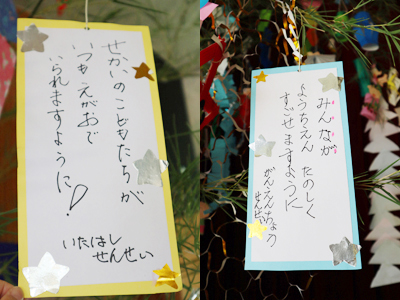 せかいのこどもたちが
いつもえがおで
いられますように!
いたはし
せんせい
みんなが
ようちえん たのしく
すごせますように
がんえんちょう
せんせい